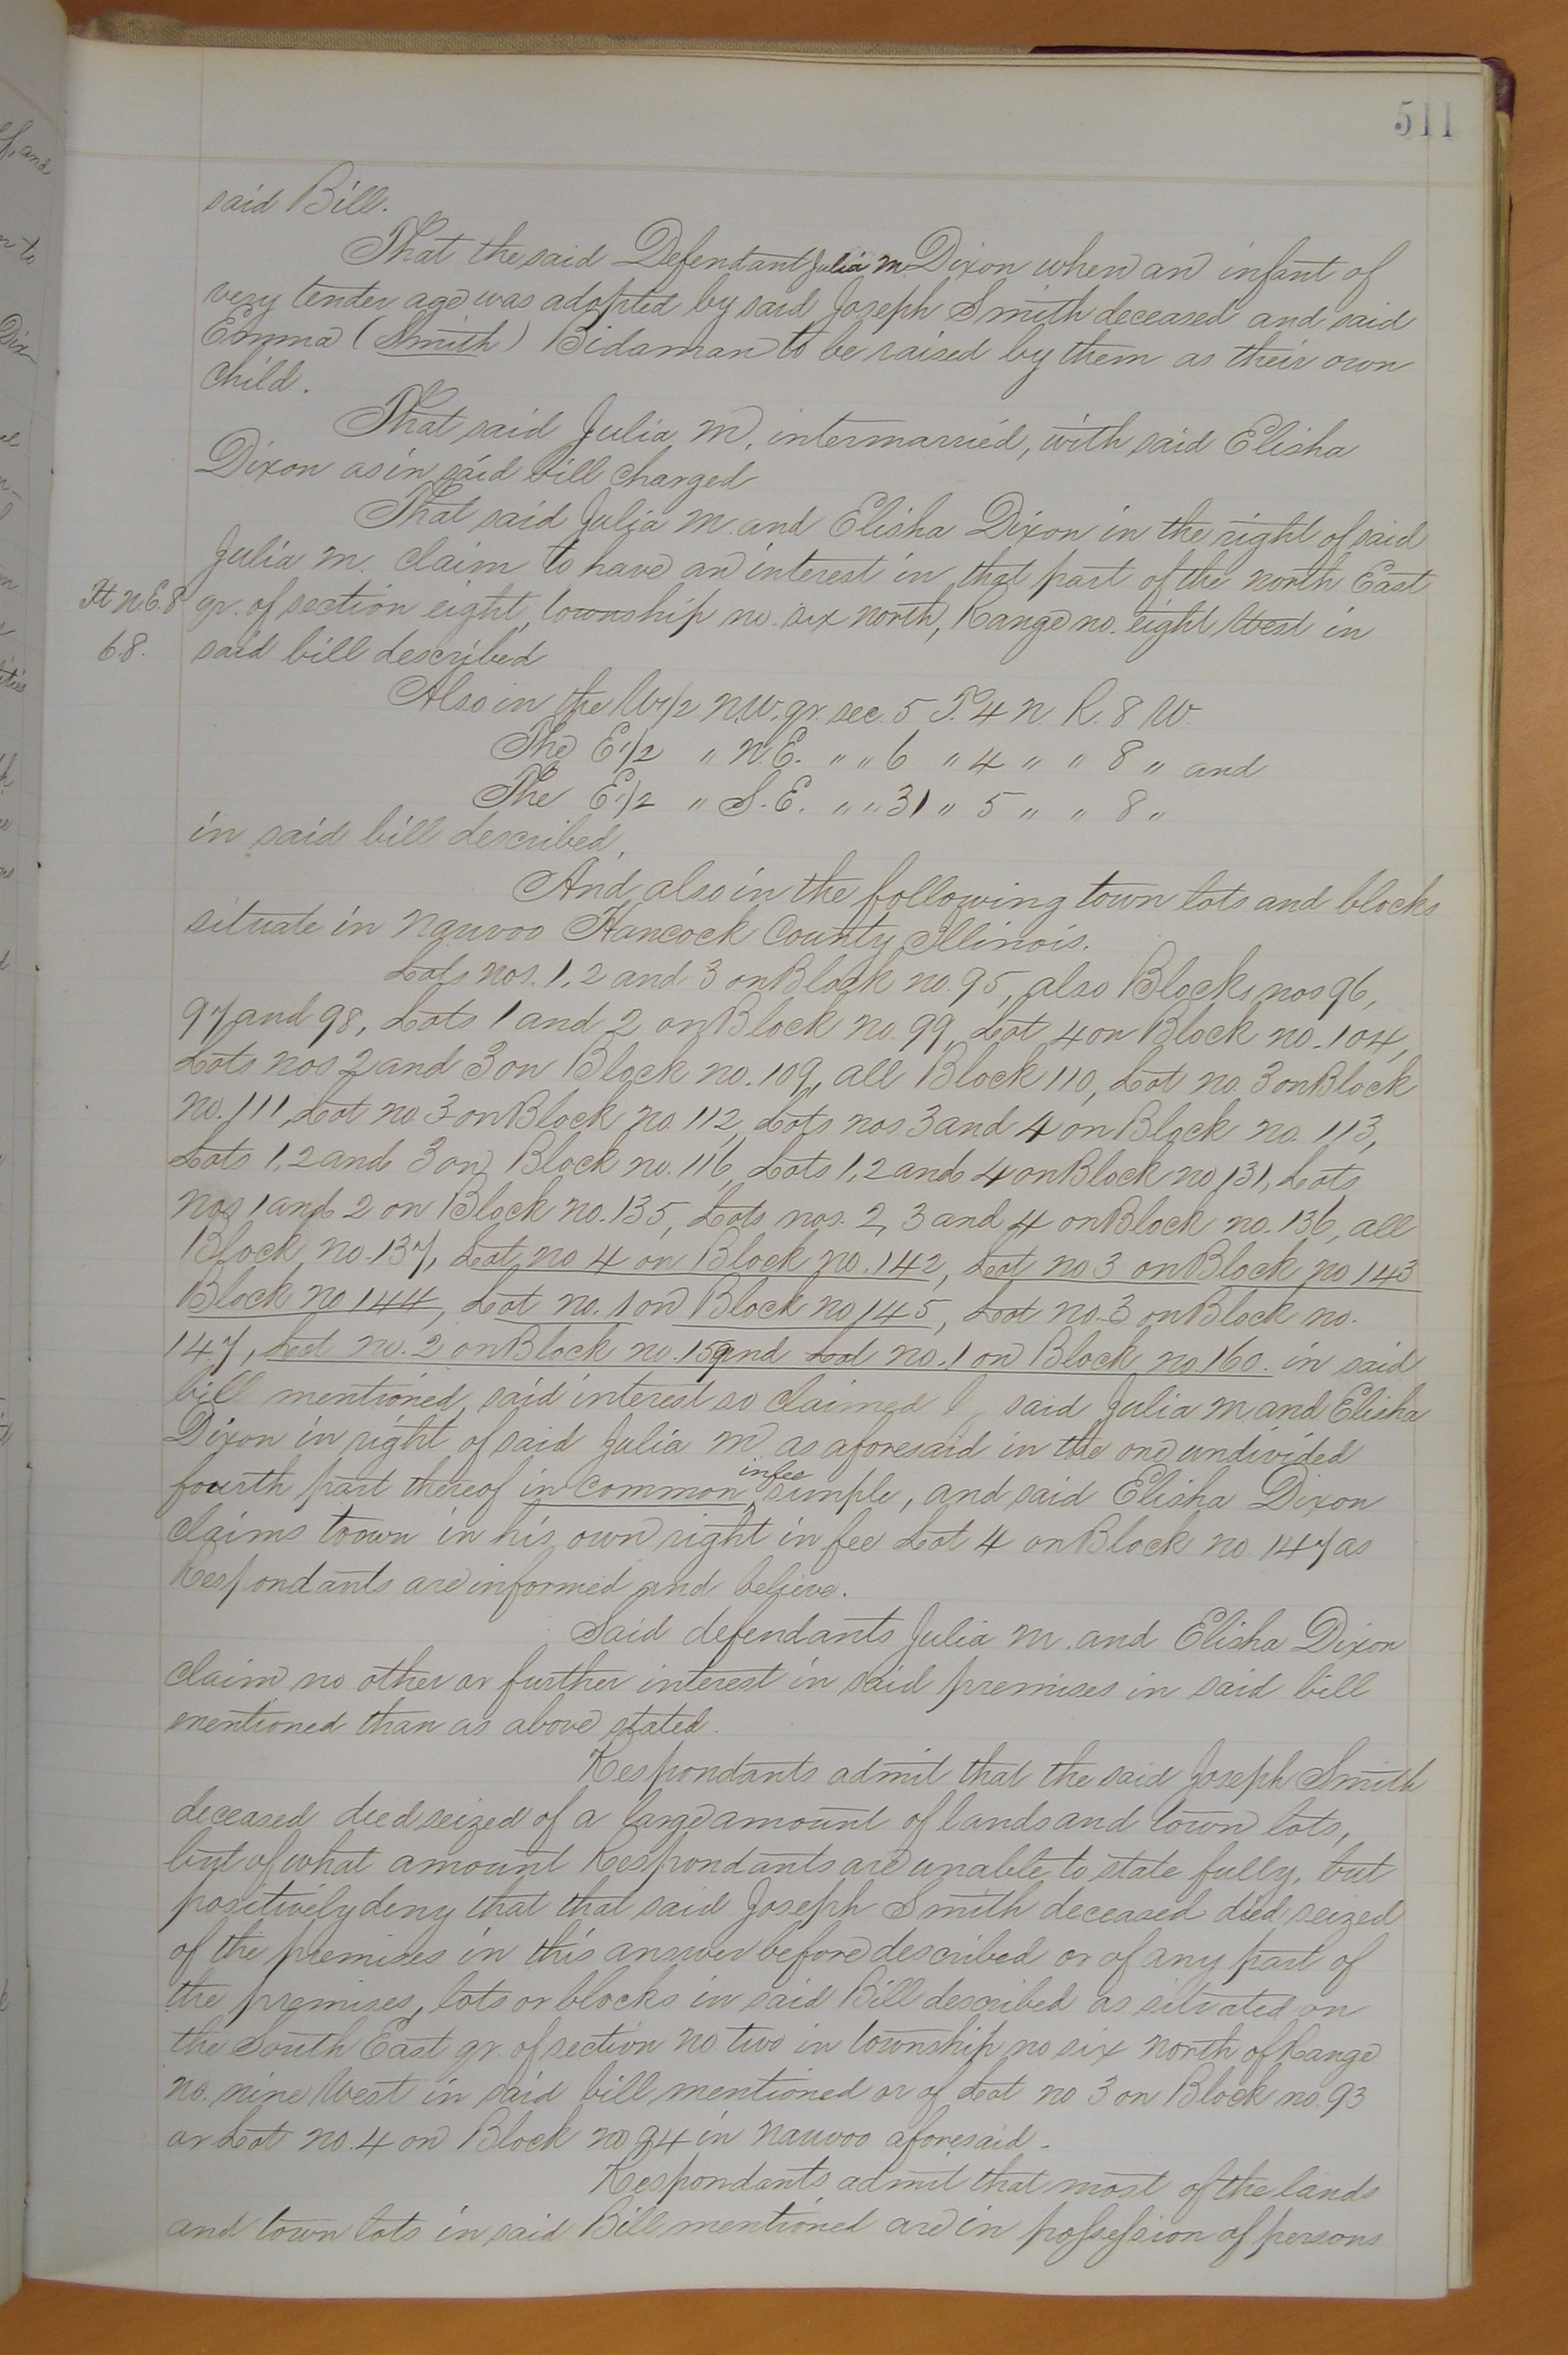 511
said Bill.
That the said Defendant Julia M. Dixon when an infant of
very tender age was adopted by said Joseph Smith deceased and said
Emma (Smith) Bidaman to be raised by them as their own
child.
That said Julia M. intermarried, with said Elisha
Dixon as in said bill charged
That said Julia M. and Elisha Dixon in the right of said
Julia M. claim to have an interest in that part of the north East
Pt N.E. 8 qr. of section eight, township no. six north, Range no. eight West in
6.8. said bill described
Also in the W1/2 N.W. qr. sec. 5 T. 4 N. R. 8 W.
The E1/2 " N.E. " " 6 " 4 " " 8 " and
The E1/2 " S.E. " " 31 " 5 " " 8 "
in said bill described,
And also in the following town lots and blocks
situate in Nauvoo Hancock County Illinois.
Lots nos. 1, 2 and 3 on Block no. 95, also Blocks nos 96,
97 and 98, Lots 1 and 2 on Block no. 99, Lot 4 on Block no. 104,
Lots nos 2 and 3 on Block no. 109, all Block 110, Lot no. 3 on Block
no. 111, Lot no 3 on Block no. 112, Lots nos 3 and 4 on Block no. 113,
Lots 1, 2 and 3 on Block no. 116, Lots 1, 2 and 4 on Block no 131, Lots
nos 1 and 2 on Block no. 135, Lots nos. 2, 3 and 4 on Block no. 136, all
Block no. 137, Lot no 4 on Block no. 142, Lot no 3 on Block no 143
Block no 144, Lot no. 1 on Block no 145, Lot no. 3 on Block no.
147, Lot no. 2 on Block no. 159 and Lot no. 1 on Block no. 160. in said
bill mentioned, said interest so claimed said Julia M and Elisha
Dixon in right of said Julia M as aforesaid in the one undivided
fourth part thereof in common in fee simple, and said Elisha Dixon
claims to own in his own right in fee Lot 4 on Block no. 147 as
Respondants are informed and believe.
Said defendants Julia M. and Elisha Dixon
claim no other or further interest in said premises in said bill
mentioned than as above stated.
Respondants admit that the said Joseph Smith
deceased died seized of a large amount of lands and town lots,
but of what amount Respondants are unable to state fully, but
positively deny that that said Joseph Smith deceased died seized
of the premises in this answer before described or of any part of
the premises, lots or blocks in said Bill described as situated on
the South East qr. of section no. two in township no six north of Range
no. nine West in said bill mentioned or of Lot no 3 on Block no. 93
or Lot no. 4 on Block no 94 in Nauvoo aforesaid.
Respondants admit that most of the lands
and town lots in said Bill mentioned are in possession of persons